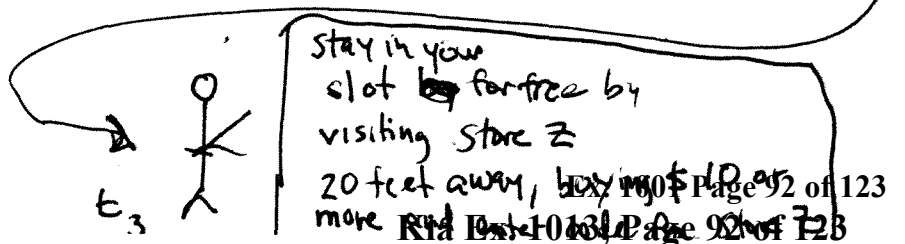 stay in your
slot for free by
visiting Store Z
20 feet away, buying $ 10 or
more and
t3
Page 92 of 123
Page 92 of 123